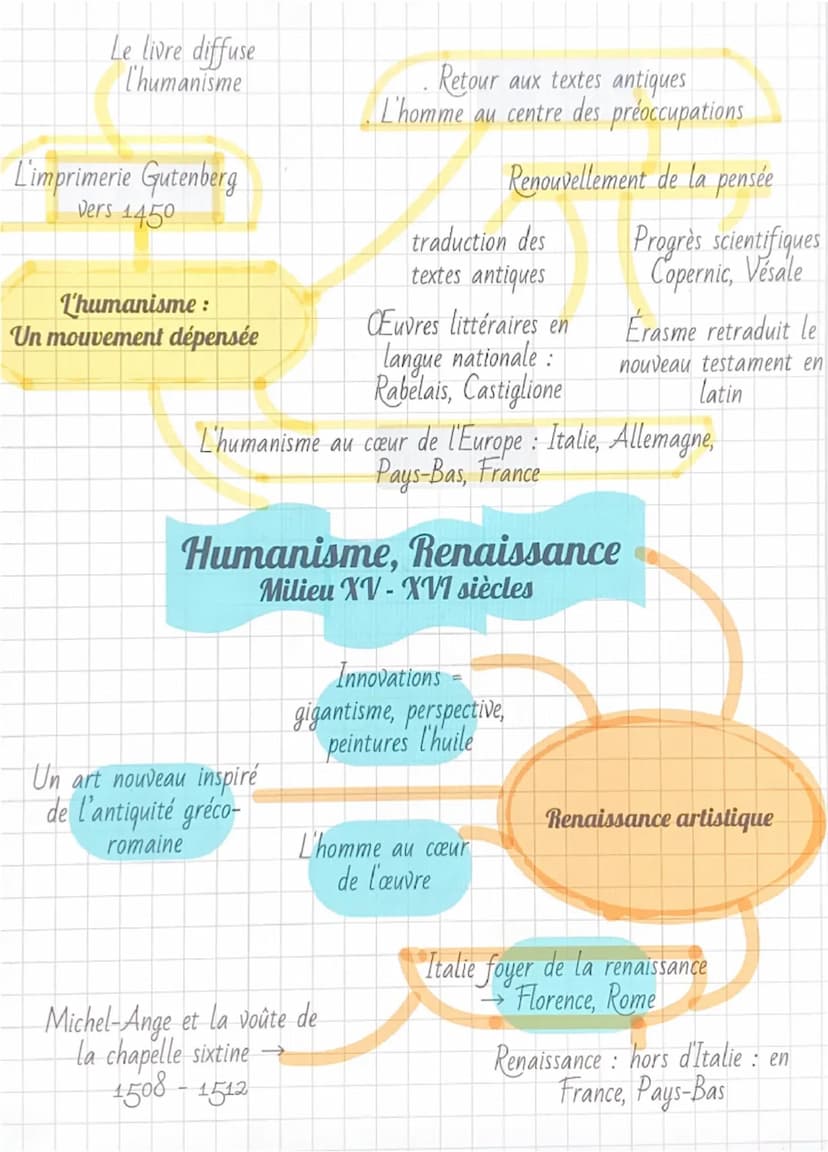 Le livre diffuse
l'humanisme
. Retour aux textes antiques
. L'homme au centre des préoccupations
L'imprimerie Gutenberg
vers 1450
Renouvellement de la pensée
traduction des
textes antiques
Progrès scientifiques
Copernic, Vésale
L'humanisme :
Un mouvement dépensée
Œuvres littéraires en
langue nationale :
Rabelais, Castiglione
Érasme retraduit le
nouveau testament en
latin
L'humanisme au cœur de l'Europe : Italie, Allemagne,
Pays-Bas, France
Humanisme, Renaissance
Milieu XV - XVI siècles
Innovations =
gigantisme, perspective,
peintures l'huile
Un art nouveau inspiré
de l'antiquité gréco-
romaine
Renaissance artistique
L'homme au cœur
de l'œuvre
Italie foyer de la renaissance
→ Florence, Rome
Michel-Ange et la voûte de
la chapelle sixtine →
1508 - 1512
Renaissance : hors d'Italie : en
France, Pays-Bas